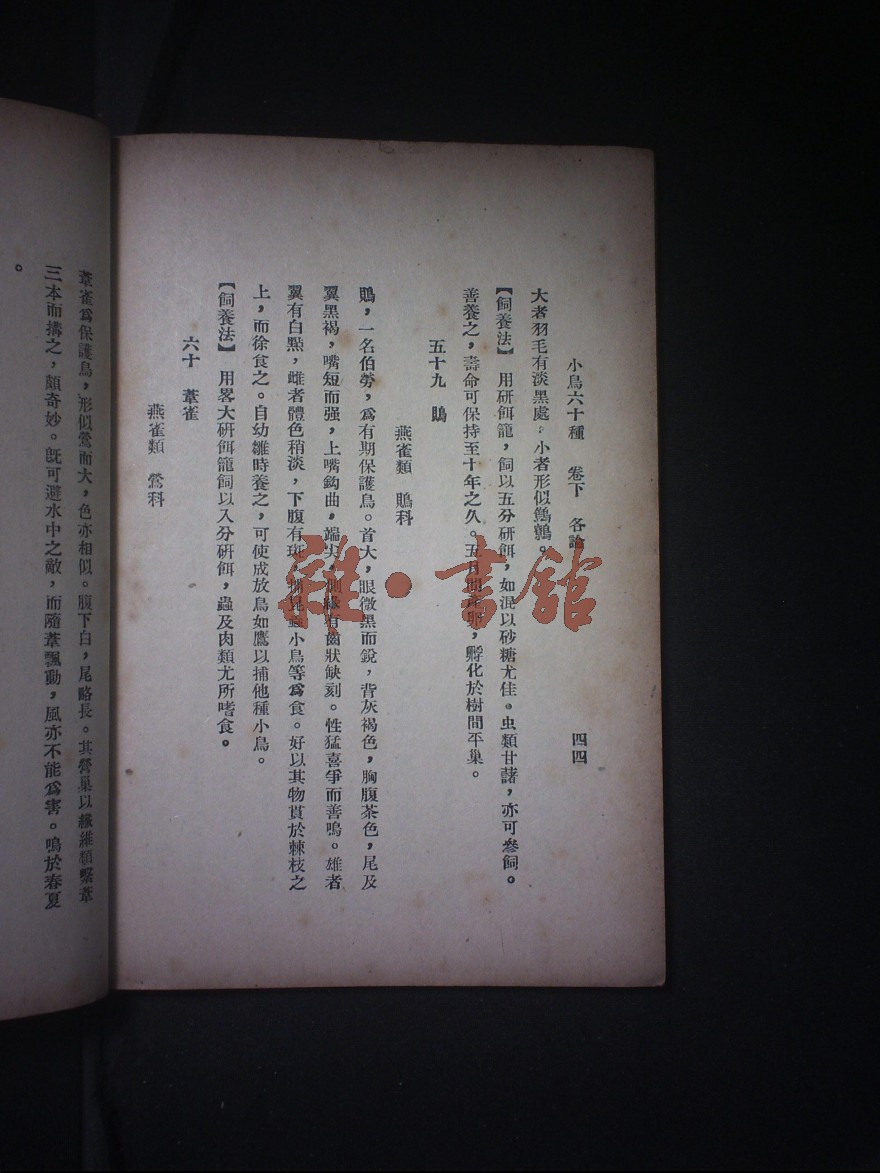 小鳥六十種　卷下　各論　四四
大者羽毛有淡黑處。小者形似鷦鷯。
【飼養法】　用研餌籠，飼以五分研餌，如混以砂糖尤佳。虫類甘藷，亦可參飼。
善養之，壽命可保持至十年之久。五月間產卵，孵化於樹間平巢。
五十九　鵙
燕雀類　鵙科
鵙，一名伯勞，爲有期保護鳥。首大，眼微黑而銳，背灰褐色，胸腹茶色，尾及
翼黑褐，嘴短而强，上嘴鈎曲，端尖，側緣有齒狀缺刻。性猛喜爭而善鳴。雄者
翼有白點，雌者體色稍淡，下腹有斑，捕昆蟲小鳥等爲食。好以其物貫於棘枝之
上，而徐食之。自幼雛時養之，可使成放鳥如鷹以捕他種小鳥。
【飼養法】　用畧大研餌籠飼以入分研餌，蟲及肉類尤所嗜食。
六十　葦雀
燕雀類　鶯科
葦雀爲保護鳥，形似鶯而大，色亦相似。腹下白，尾略長。其營巢以纖維類繫葦
三本而搆之，頗奇妙。旣可避水中之敵，而隨葦飄動，風亦不能爲害。鳴於春夏
。
雜·書館